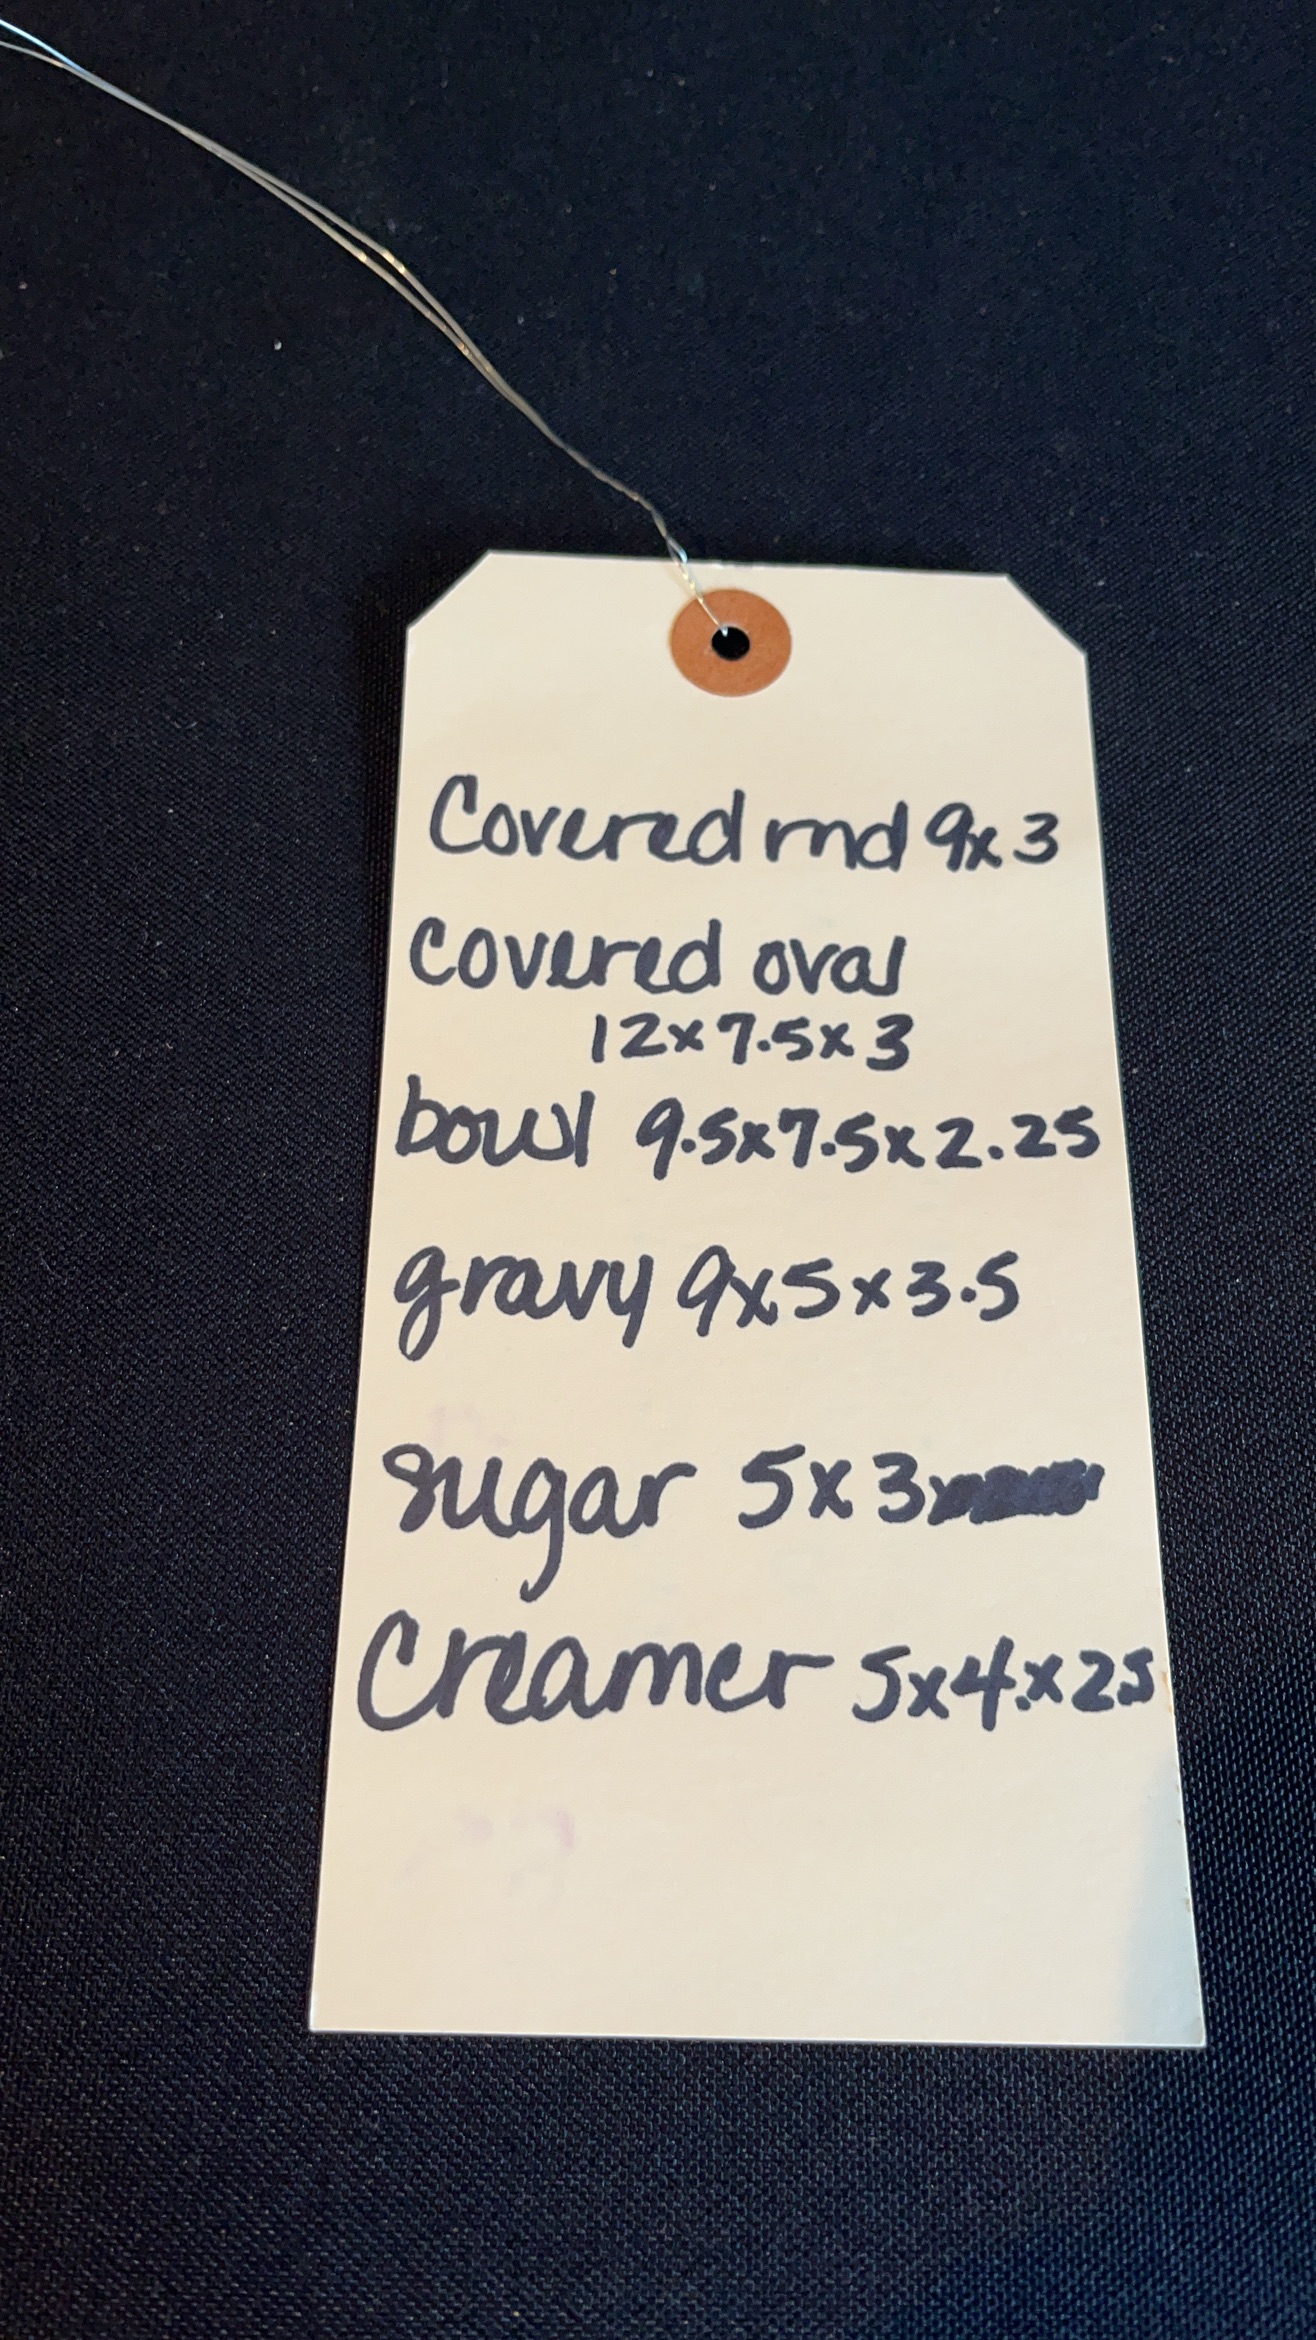 Covered rnd 9x3
covered oval
12x7.5x3
bowl 9.5x7.5x2.25
gravy 9x5x3.5
sugar 5x3
Creamer 5x4.x2.5